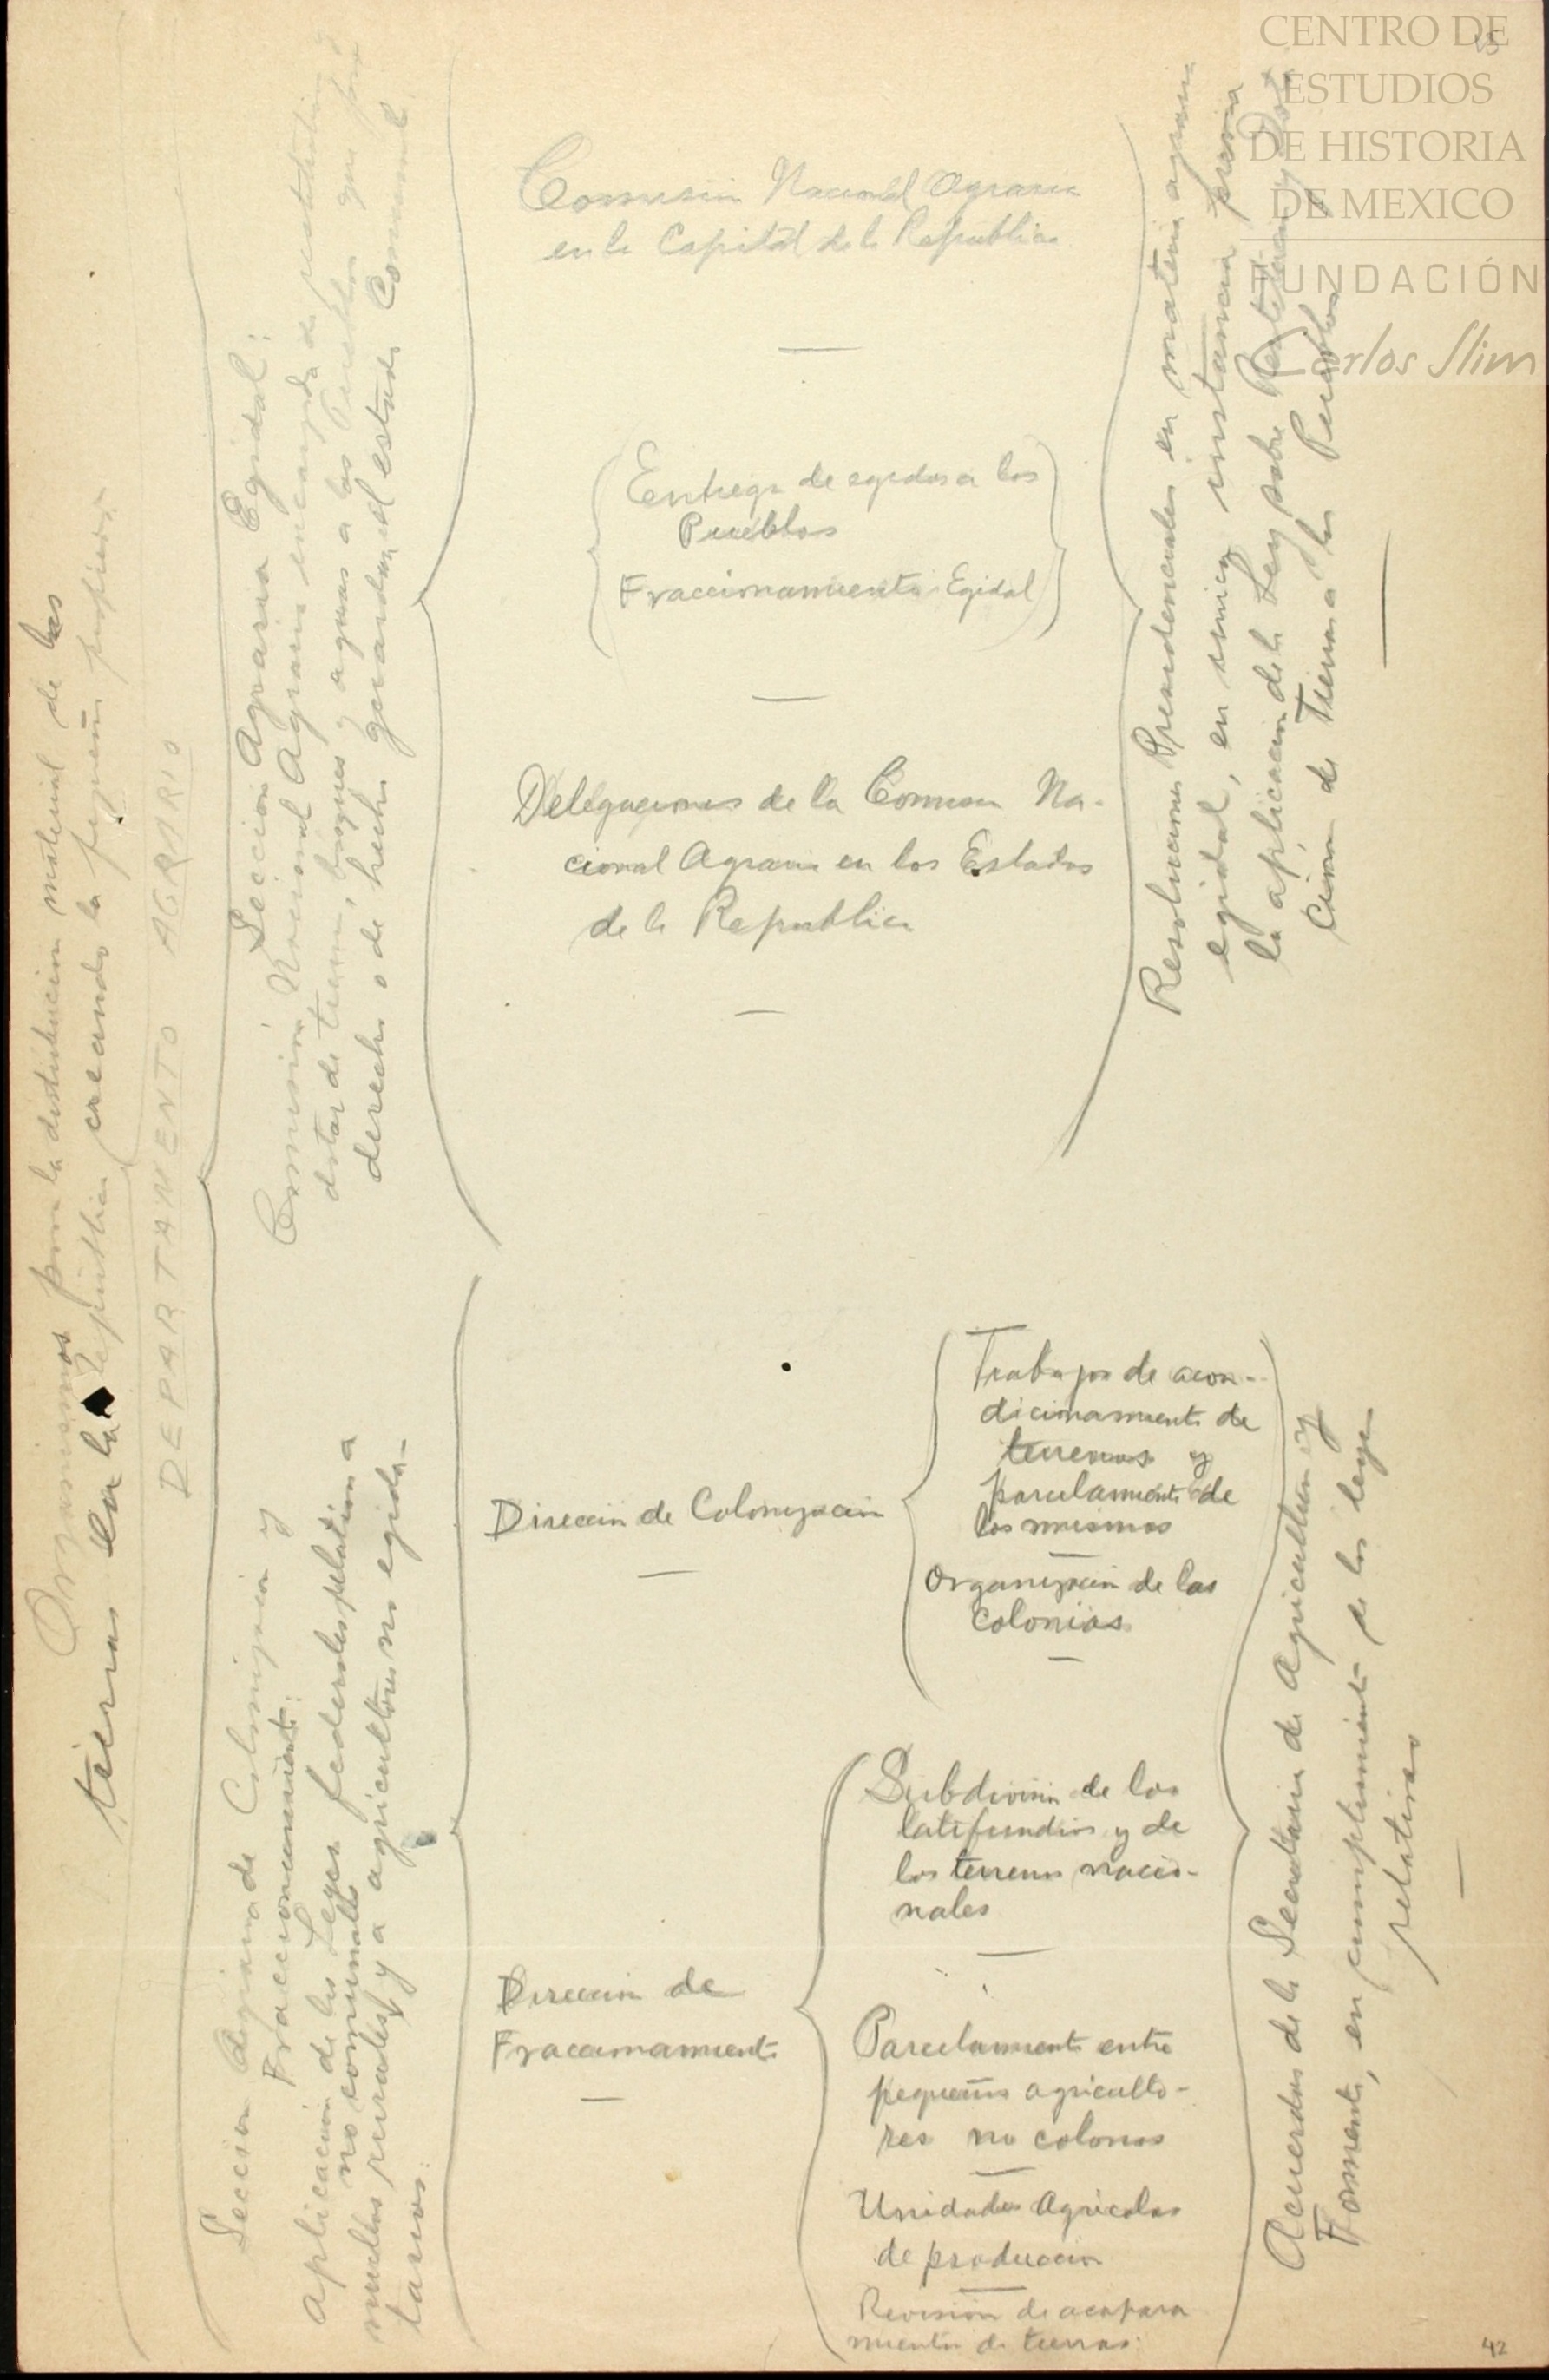 Organismos para la distribucion material de las
tierras en la Republica creando la pequeña propiedad.
DEPARTAMENTO AGRARIO
Seccion Agraria Egidal:
Comisión Nacional Agraria encargada de restituir y
dotar de tierras, bosques y aguas a los Pueblos que por
derecho o de hecho guardan el estado Comunal.
Comision Nacional Agraria
en la Capital de la Republica
Entrega de egidos a los
Pueblos
Fraccionamiento Egidal
Delegaciones de la Comision Na-
cional Agraria en los Estados
de la Republica
Resoluciones Presidenciales en materia agraria
egidal, en unica instancia
la aplicacion de la Ley sobre Restitucion y Dota-
ción de Tierras a los Pueblos
Seccion Agraria de Colonizacion y
Fraccionamiento:
Aplicación de las Leyes federales relativas a
no comunales
nucleos rurales y a agricultores no egida-
tarios.
Dirección de Colonizacion
Trabajos de acon-
dicionamiento de
terrenos y
parcelamiento de
los mismos
Organizacion de las
Colonias
Direccion de
Fraccionamiento
Subdivision de los
latifundios y de
los terrenos nacio-
nales
Parcelamiento entre
pequeños agriculto-
res no colonos
Unidades Agricolas
de produccion
Revision de acapara
miento de tierras.
Acuerdos de la Secretaria de Agricultura y
Fomento, en cumplimiento de las leyes
relativas
42
CENTRO DE
ESTUDIOS
DE HISTORIA
DE MEXICO
FUNDACIÓN
Carlos Slim